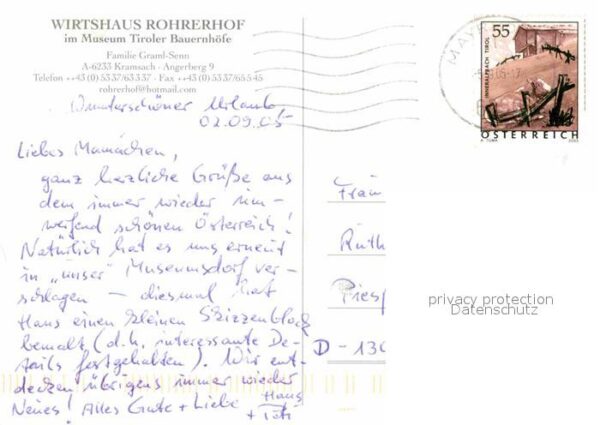 WIRTSHAUS ROHRERHOF
im Museum Tiroler Bauernhöfe
Familie Graml-Senn
A-6233 Kramsach · Angerberg 9
Telefon ++43 (0) 53 37/63 3 37 · Fax ++43 (0) 53 37/65 5 45
rohrerhof@hotmail.com
Wunderschöner Urlaub
02.09.05
Liebes Mamachen,
ganz herzliche Grüße aus
dem immer wieder um-
werfend schönen Österreich!
Natürlich hat es uns erneut
in "unser" Museumsdorf ver-
schlagen – diesmal hat
Hans einen kleinen Skizzenblock
bemalt (d.h. interessante De-
tails festgehalten). Wir ent-
decken übrigens immer wieder
Neues! Alles Gute + Liebe Hans
+
55
INNERALPBACH TIROL
ÖSTERREICH
2002
MAY
Frau
Ruth
Piesp
D - 130
privacy protection
Datenschutz